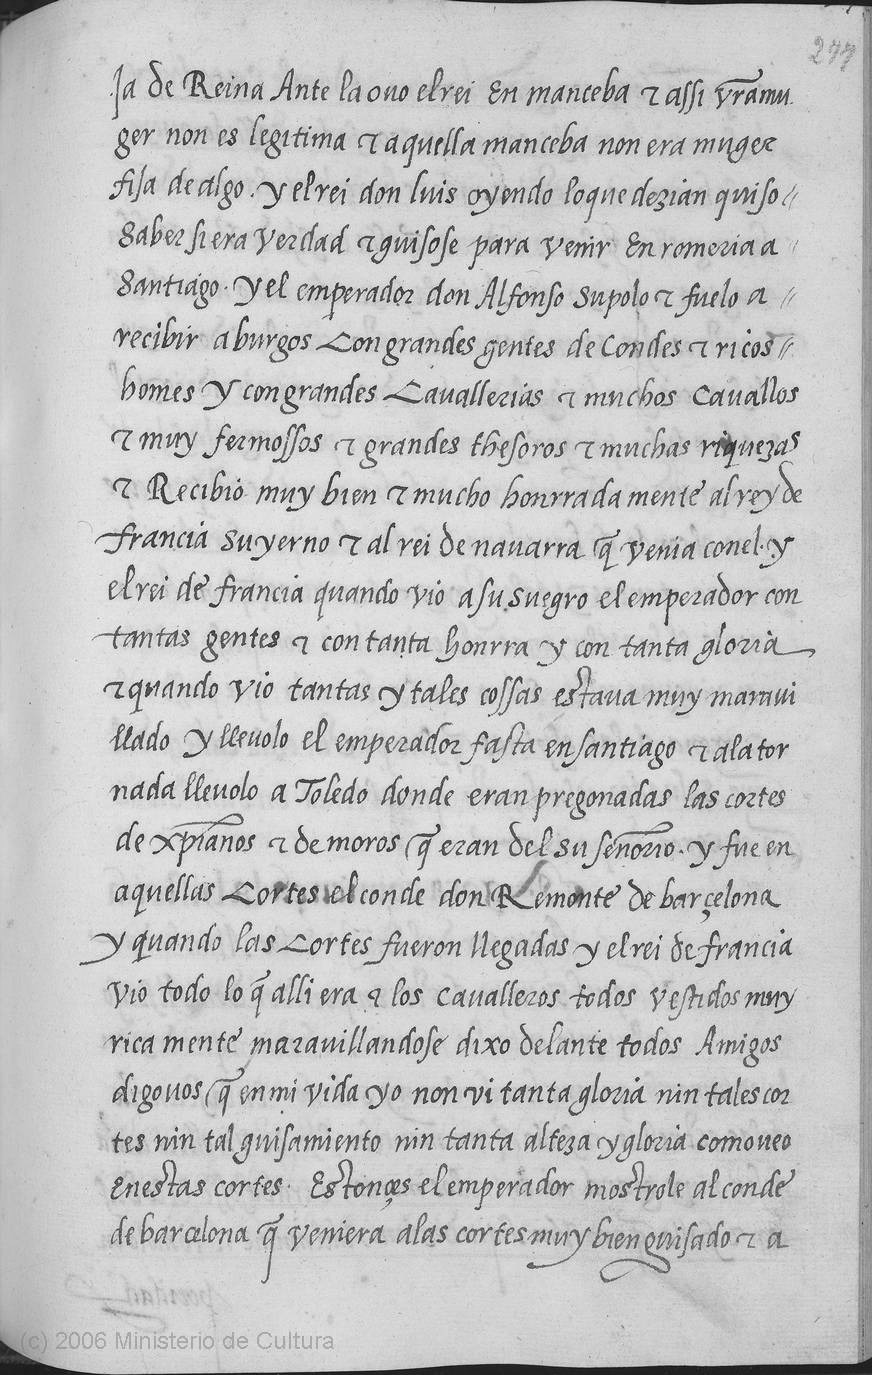 277
Ja de Reina Ante la ouo el rei En manceba & assi vr̃a mu
ger non es legitima & aquella manceba non era muger
fija de algo . y el rei don luis oyendo lo que dezian quiso //
Saber si era verdad & guisose para venir En romeria a //
Santiago . y el emperador don Alfonso supolo & fuelo a //
recibir a burgos Con grandes gentes de Condes & ricos //
homes y con grandes Cauallerias & muchos Cauallos
& muy fermossos & grandes thesoros & muchas riquezas
& Recibio muy bien & mucho honrrada mente al rey de
francia su yerno & al rei de nauarra q̃ venia conel . y
el rei de francia quando vio a su suegro el emperador con
tantas gentes & con tanta honrra y con tanta gloria
& quando vio tantas y tales cossas estaua muy maraui
llado y lleuolo el emperador fasta en santiago & ala tor
nada lleuolo a Toledo donde eran pregonadas las cortes
de xp̃ianos & de moros q̃ eran del su señorio . y fue en
aquellas Cortes el conde don Remonte de barçelona
y quando las Cortes fueron llegadas y el rei de francia
vio todo lo q̃ alli era & los caualleros todos vestidos muy
rica mente marauillandose dixo delante todos Amigos
digouos q̃ en mi vida yo non vi tanta gloria nin tales cor
tes nin tal guisamiento nin tanta alteza y gloria como veo
En estas cortes . Estonçes el emperador mostrole al conde
de barcelona q̃ veniera alas cortes muy bien guisado & a
(c) 2006 Ministerio de Cultura